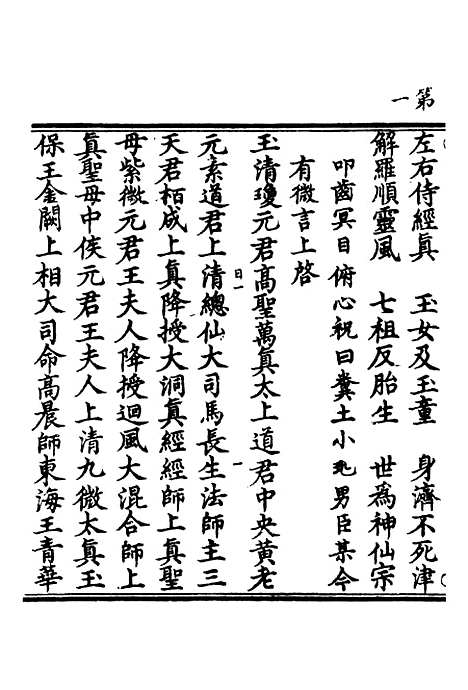 第一
左右侍經真　玉女及玉童　身濟不死津
解羅順靈風　七祖反胎生　世為神仙宗
叩齒冥目俯心祝曰糞土小兆男臣某今
有微言上啓
玉清瓊元君高聖萬真太上道君中央黄老
元素道君上清總仙大司馬長生法師主三
天君栢成上真降授大洞真經經師上真聖
母紫微元君王夫人降授迴風大混合師上
真聖母中侯元君王夫人上清九微太真玉
保王金闕上相大司命高晨師東海王青華